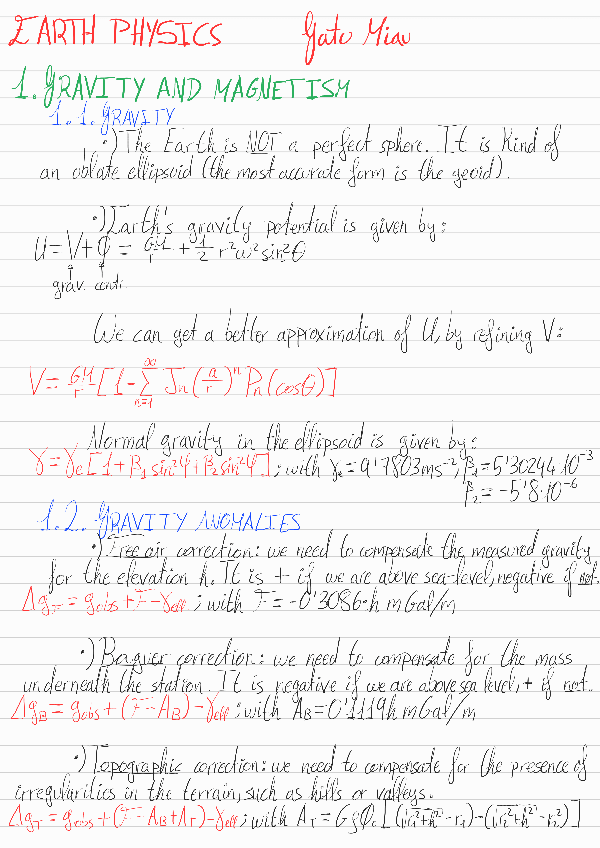 EARTH PHYSICS Gato Miau
1. GRAVITY AND MAGNETISM
1.1. GRAVITY
·) The Earth is NOT a perfect sphere. It is kind of
an oblate ellipsoid (the most accurate form is the geoid).
·) Earth's gravity potential is given by:
U = V + Φ = GM/r + 1/2 r²ω² sin²θ
grav. centr.
We can get a better approximation of U, by refining V:
V = GM/r [1 - ∑_{n=1}^{∞} Jn (a/r)^n Pn (cosθ)]
Normal gravity in the ellipsoid is given by:
γ = γe [1 + β₁ sin²φ + β₂ sin²φ]; with γe = 9'7803 ms⁻², β₁ = 5'30244·10⁻³
β₂ = -5'8·10⁻⁶
1.2. GRAVITY ANOMALIES
·) Free air correction: we need to compensate the measured gravity
for the elevation h. It is + if we are above sea-level, negative if not.
Δg_F = gobs + F - γeff; with F = -0'3086·h mGal/m
·) Bouguer correction: we need to compensate for the mass
underneath the station. It is negative if we are above sea level, + if not.
Δg_B = gobs + (F - A_B) - γeff; with A_B = 0'1119h mGal/m
·) Topographic correction: we need to compensate for the presence of
irregularities in the terrain, such as hills or valleys.
Δg_T = gobs + (F - A_B + A_T) - γeff; with A_T = Gρφ₀ [(√(r₁² + h²) - r₁) - (√(r₂² + h²) - r₂)]